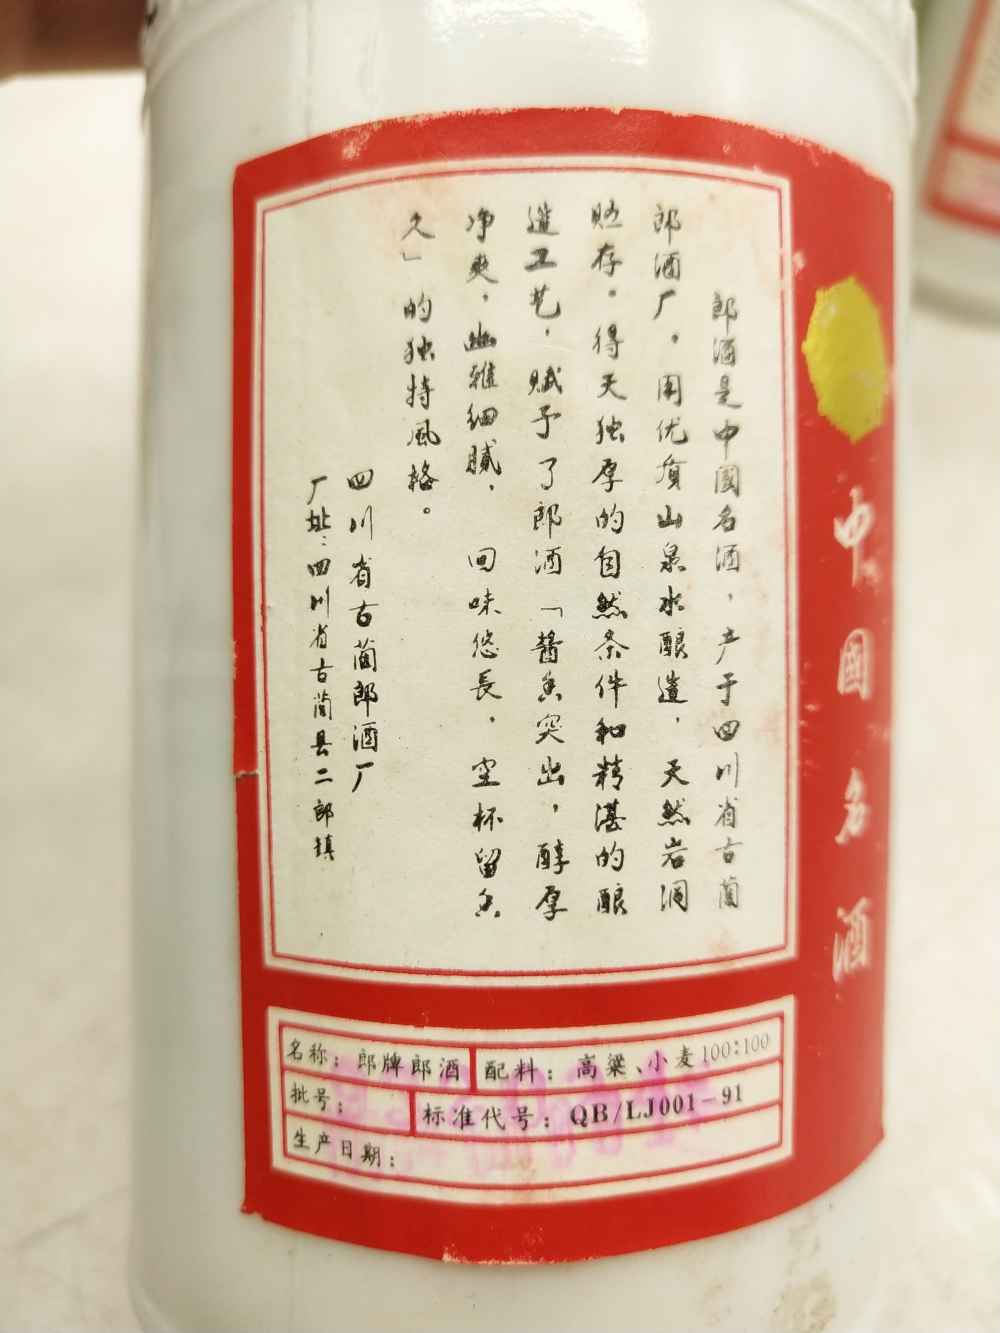 中國名酒
郎酒是中國名酒，产于四川省古蔺
郎酒厂。用优质山泉水酿造，天然岩洞
贮存。得天独厚的自然条件和精湛的酿
造工艺，赋予了郎酒「酱香突出，醇厚
净爽，幽雅细腻，回味悠長，空杯留香
久」的独特風格。
四川省古蔺郎酒厂
厂址：四川省古蔺县二郎镇
名称：郎牌郎酒 配料：高粱、小麦100:100
批号： 标准代号：QB/LJ001-91
生产日期：